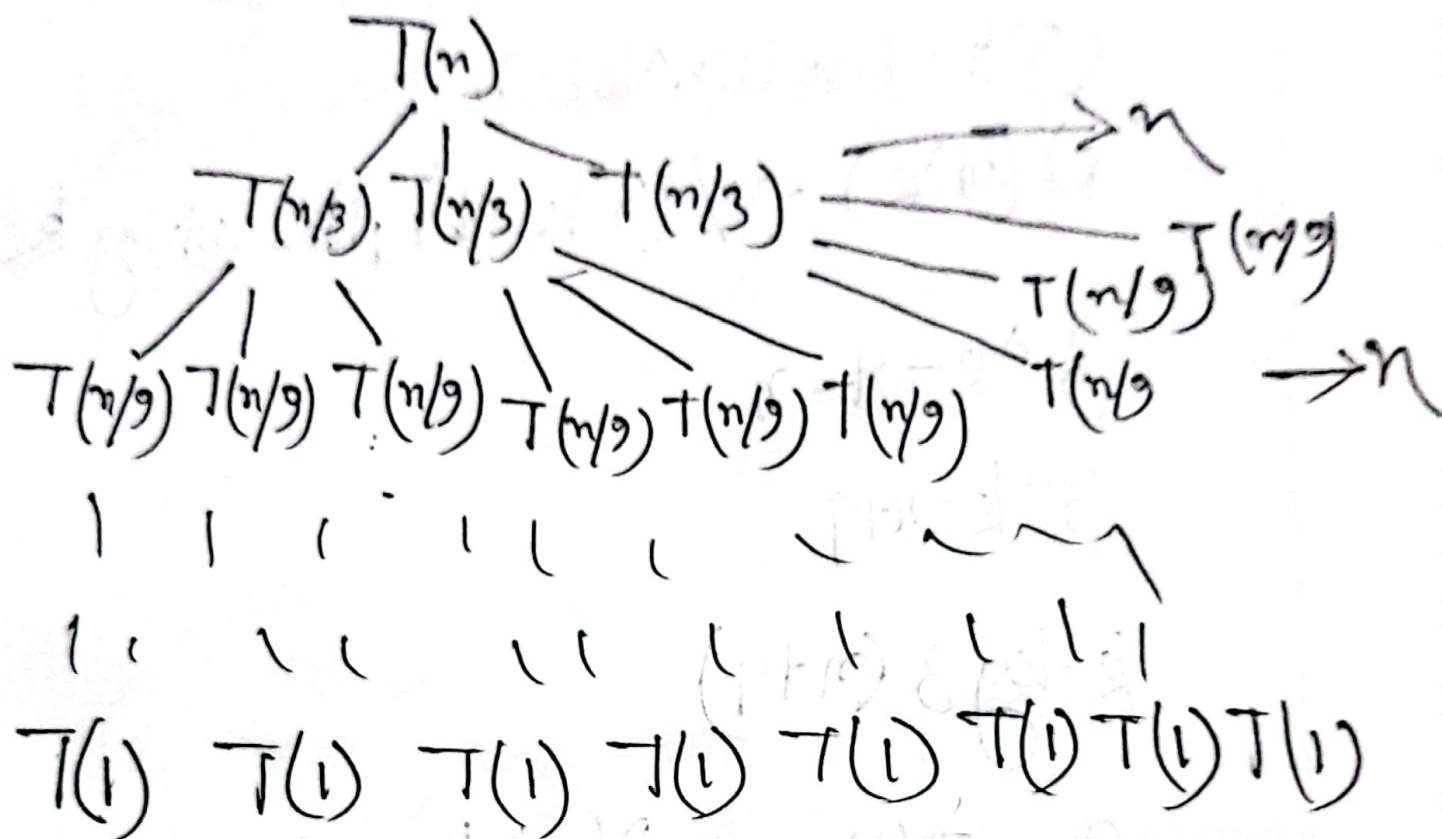 T(n)
T(n/3) T(n/3) T(n/3) → n
T(n/9) T(n/9
T(n/9) T(n/9) T(n/9) T(n/9) T(n/9) T(n/9) T(n/9 → n
T(1) T(1) T(1) T(1) T(1) T(1) T(1) T(1)